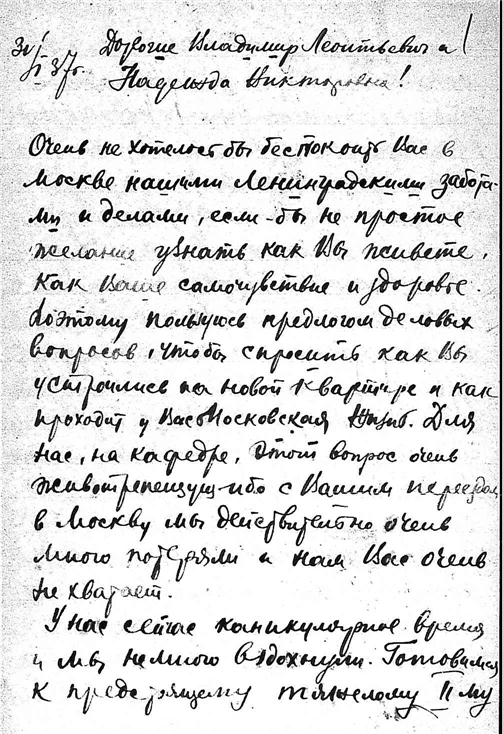 31/I 37г. Дорогие Владимир Леонтьевич и
Надежда Викторовна!
Очень не хотелось бы беспокоить Вас в
Москве нашими Ленинградскими забота-
ми и делами, если-бы не простое
желание узнать как Вы живете,
как Ваше самочувствие и здоровье.
Поэтому пользуюсь предлогом деловых
вопросов, чтобы спросить как Вы
устроились на новой квартире и как
проходит у Вас Московская жизнь. Для
нас, на кафедре, этот вопрос очень
животрепещущ ибо с Вашим переездом
в Москву мы действительно очень
много потеряли и нам Вас очень
не хватает.
У нас сейчас каникулярное время
и мы немного вздохнули. Готовимся
к предстоящему тяжелому II му